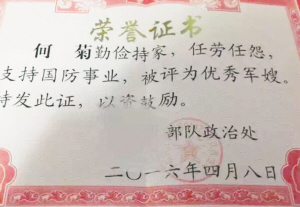 荣誉证书
何 菊勤俭持家，任劳任怨，
支持国防事业，被评为优秀军嫂。
特发此证，以资鼓励。
部队政治处
二〇一六年四月八日